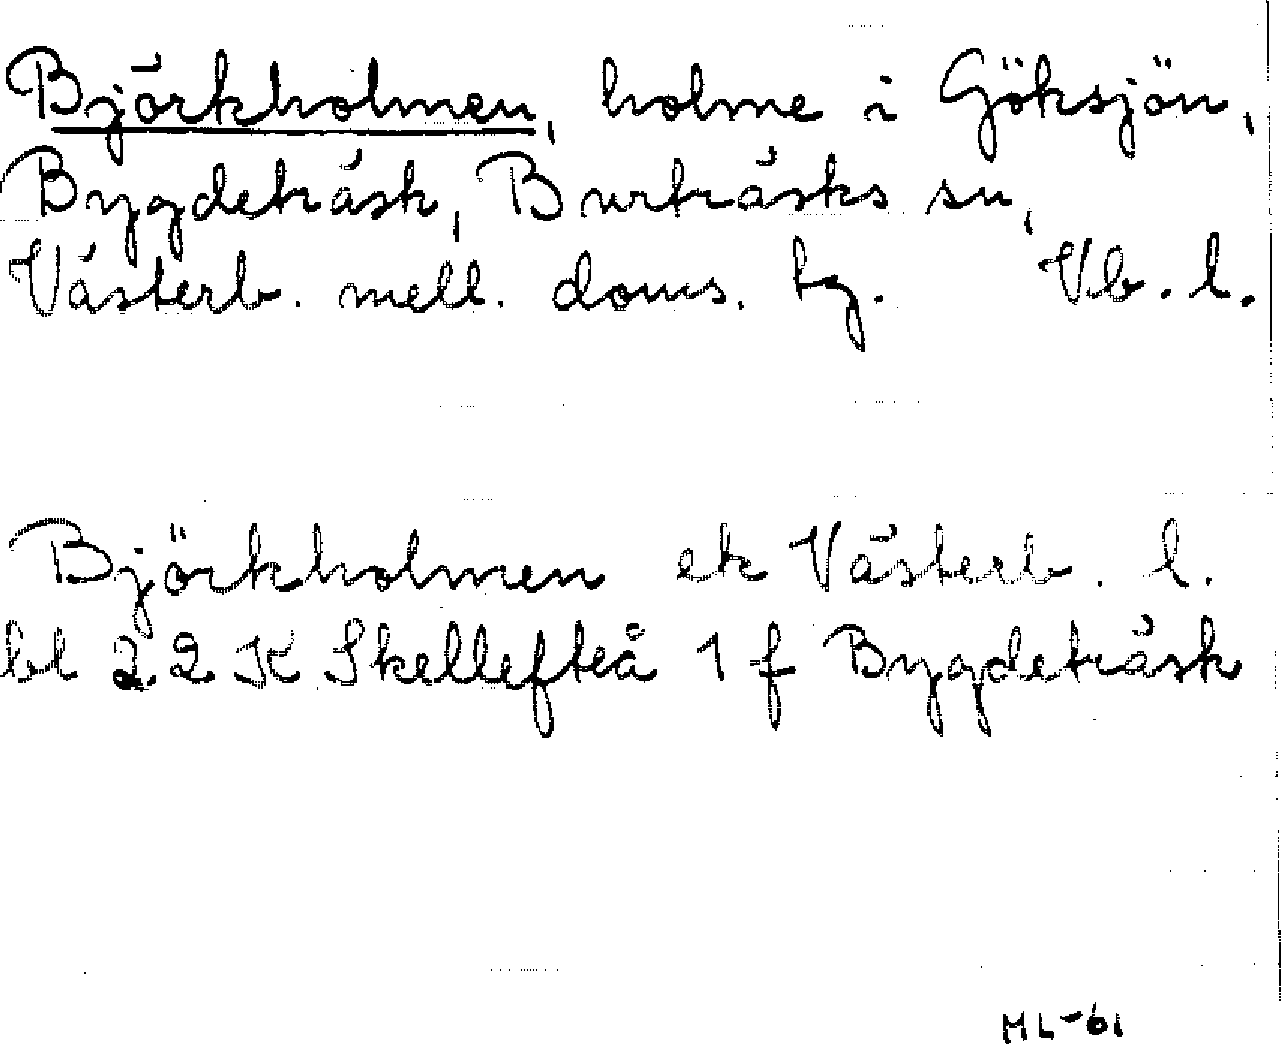 Björkholmen, holme i Göksjön,
Bygdeträsk, Burträsks sn,
Västerb. mell. doms. tg. Vb. l.
Björkholmen ek Västerb. l.
bl 22 K Skellefteå 1 f Bygdeträsk
ML-61